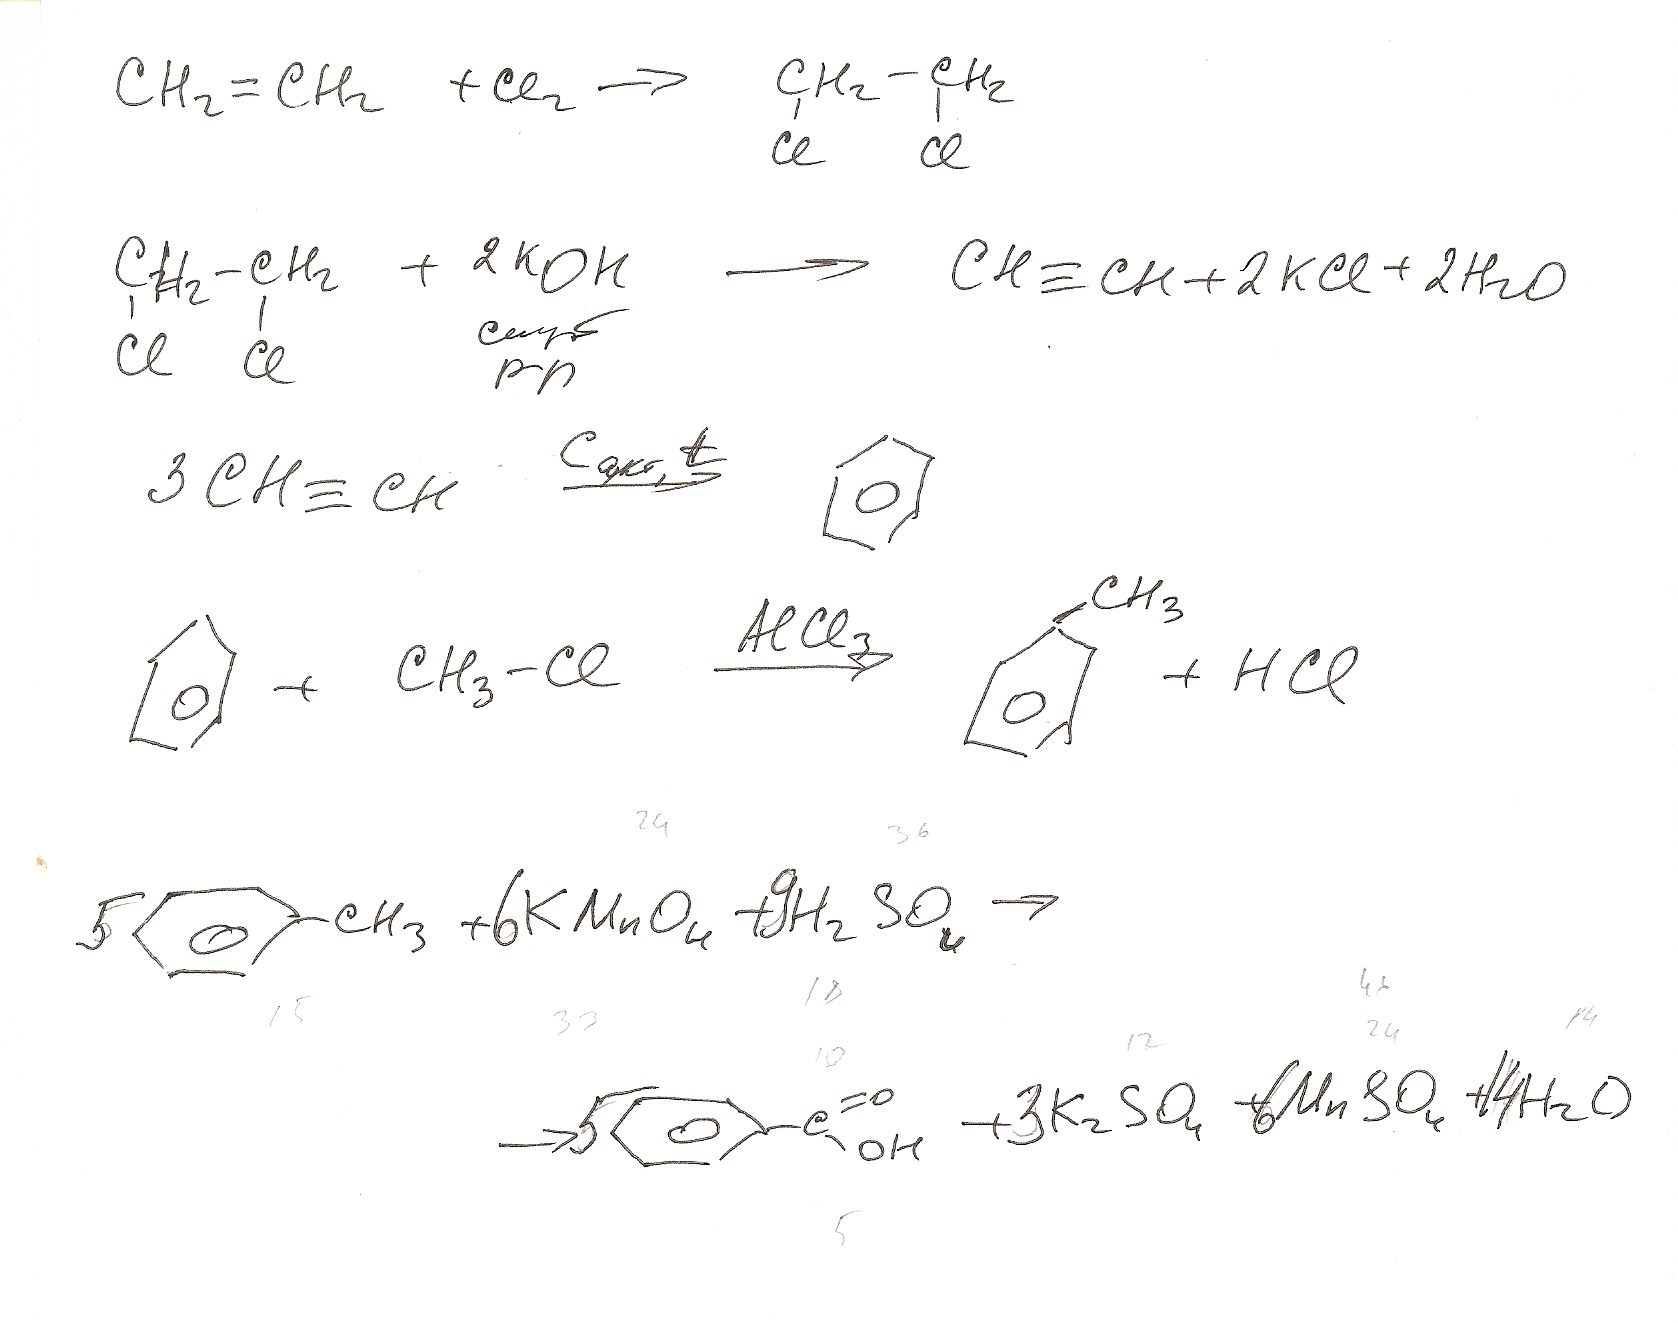 CH₂=CH₂ +Cl₂ → CH₂-CH₂
Cl Cl
CH₂-CH₂ + 2KOH → CH≡CH+2KCl+2H₂O
Cl Cl спирт
р-р
3CH≡CH Cакт, t
+ CH₃-Cl AlCl₃ CH₃ + HCl
24 36
5 -CH₃ +6KMnO₄ +9H₂SO₄ →
15 33 18
10 12 24 14
→5 -C=O OH +3K₂SO₄ +6MnSO₄ +14H₂O
5